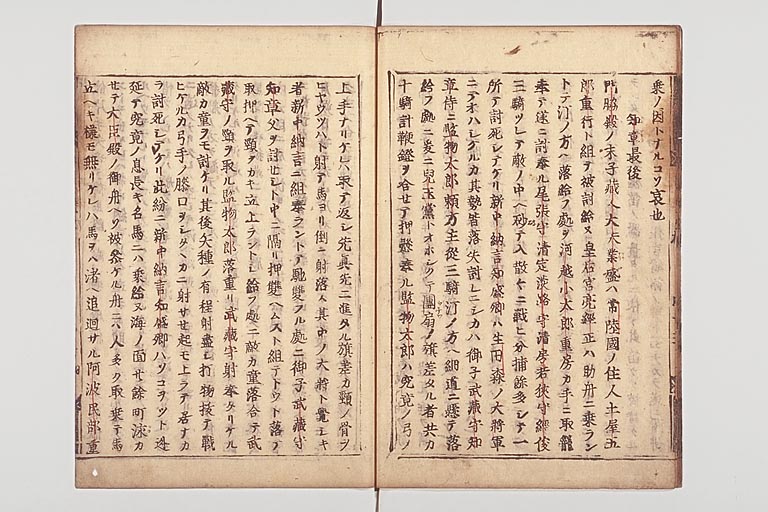 乗ノ因トナルコソ哀也
知章最後
門脇殿ノ末子蔵人大夫業盛ハ常陸國ノ住人土屋五
郎重行ト組テ被討給ヌ皇后宮亮經正ハ助舟ニ乗ラン
トテ汀ノ方ヘ落給フ處ヲ河越小太郎重房カ手ニ取籠
奉テ遂ニ討奉ル尾張守清定淡路守清房若狭守經俊
三騎ツレテ敵ノ中ヘ破テ入散々ニ戦ヒ分捕餘多シテ一
所テ討死シテケリ新中納言知盛卿ハ生田森ノ大将軍
ニテオハシケルカ其勢皆落失討レニシカハ御子武蔵守知
章侍ニ監物太郎頼方主従三騎汀ノ方ヘ細道ニ懸テ落
給フ處ニ爰ニ兒玉黨トオホシクテ團扇ノ旗差タル者共カ
十騎計鞭鐙ヲ合セテ押懸奉ル監物太郎ハ究竟ノ弓ノ
上手ナリケレハ取テ返シ先真先ニ進タル旗差カ頸ノ骨ヲ
ヒヤウツハト射テ馬ヨリ倒ニ射落ス其中ノ大将ト覺シキ
者新中納言ニ組奉ラントテ馳雙フル處ニ御子武蔵守
知章父ヲ討セシト中ニ隔リ押雙ヘムスト組テトウト落テ
取押ヘテ頸ヲカキ立上ラントシ給フ處ニ敵カ童落合テ武
蔵守ノ頸ヲ取ル監物太郎落重リ武蔵守射奉タリケル
敵カ童ヲモ討ケリ其後矢種ノ有程射盡シ打物抜テ戦
ヒケルカ弓手ノ膝口ヲシタヽカニ射サセ起モ上ラテ居ナカ
ラ討死シテケリ此紛ニ新中納言知盛卿ハソコヲツト迯
延テ究竟ノ息長キ名馬ニハ乗給ヌ海ノ面廿餘町泳カ
セテ大臣殿ノ御舟ヘソ被参ケル舟ニハ人多ク取乗テ馬
立ヘキ様モ無リケレハ馬ヲハ渚ヘ追迴サル阿波民部重